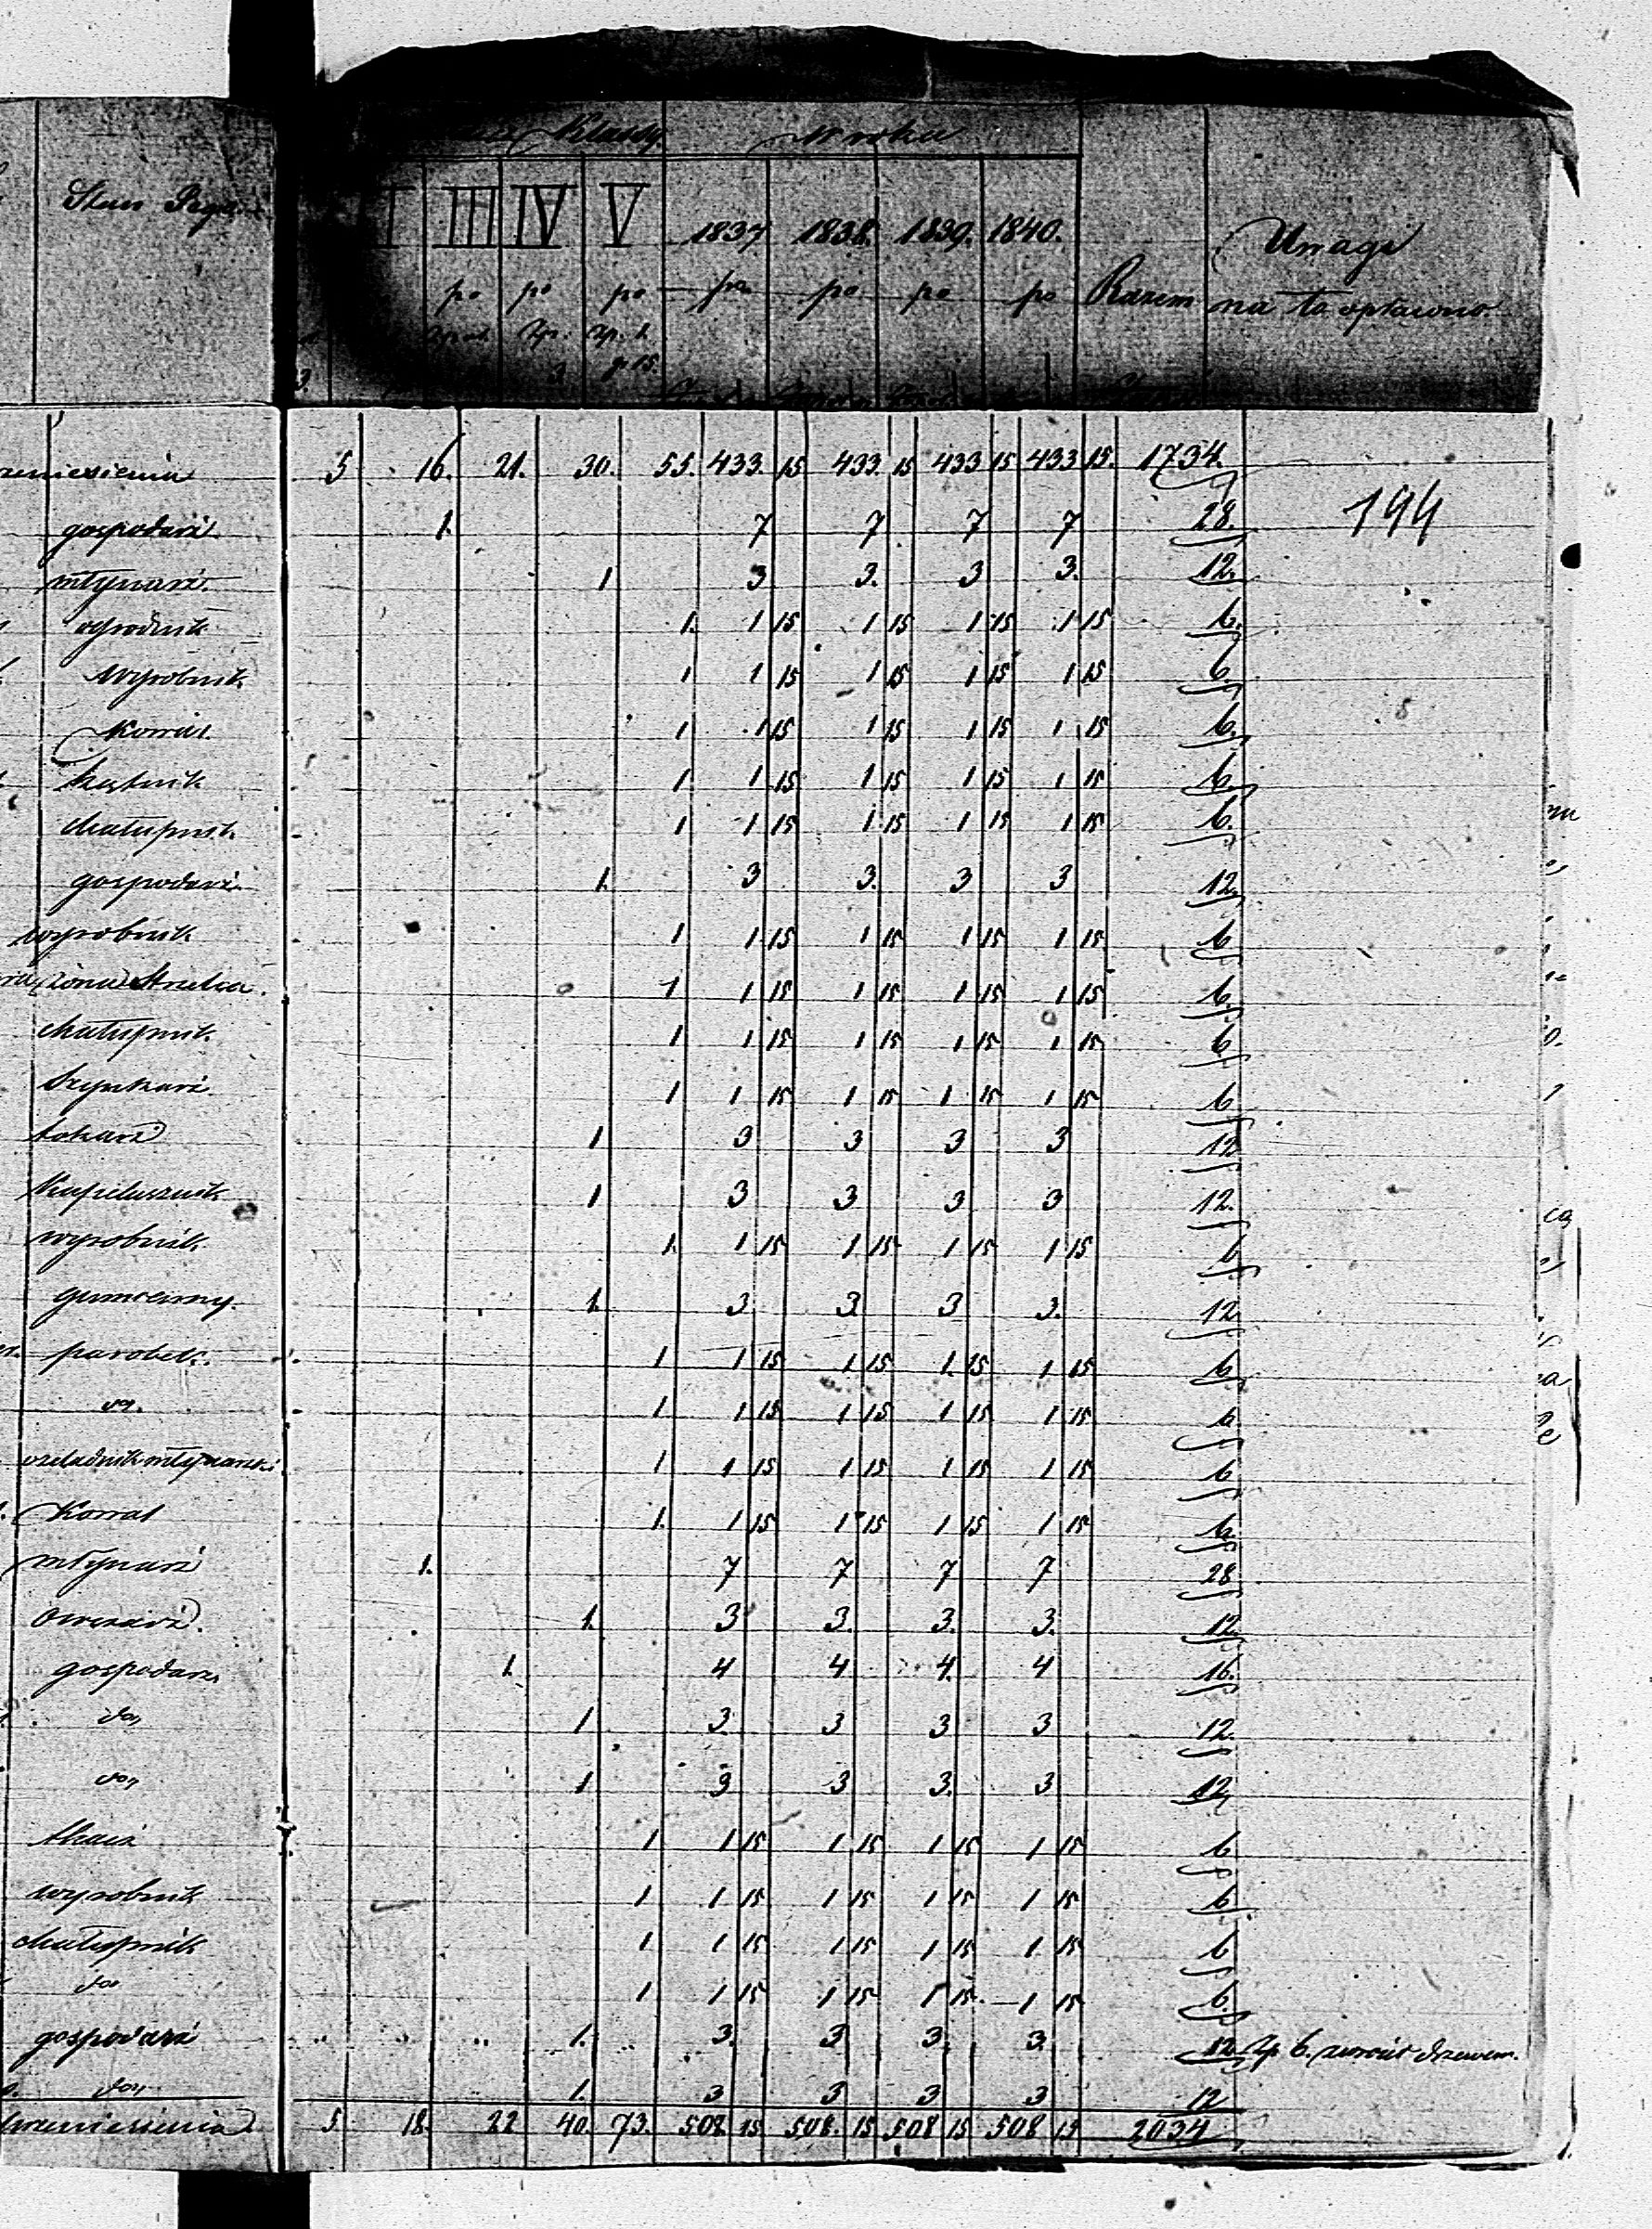 Klassy. W roku
Stan
III IV V 1837 1838. 1839. 1840. Uwagi
po po po po po po po Razem na to opłacono
zp. zp. 1
3. g 15.
zeniesienia 5 16. 21. 30. 55. 433. 15 433. 15 433 15 433 15. 1734.
194
gospodarz 1. 7 7 7 7 28.
młynarz. 1 3 3. 3 3. 12.
ogrodnik 1. 1 15 1 15 1 15 1 15 6.
wyrobnik 1 1 15 1 15 1 15 1 15 6.
Kowal 1 1 15 1 15 1 15 1 15 6.
1 1 15 1 15 1 15 1 15 6.
chałupnik 1 1 15 1 15 1 15 1 15 6.
gospodarz. 1. 3 3. 3 3 12.
wyrobnik 1 1 15 1 15 1 15 1 15 6
żona Strzelca. 1 1 15 1 15 1 15 1 15 6.
chałupnik. 1 1 15 1 15 1 15 1 15 6
Szynkarz. 1 1 15 1 15 1 15 1 15 6
tokarz 1 3 3 3 3 12
Kapelusznik 1 3 3 3 3 12.
wyrobnik. 1. 1 15 1 15 1 15 1 15 6
gumienny. 1. 3 3 3 3. 12
parobek. 1 1 15 1 15 1. 15 1 15 6
do. 1. 1 15 1 15 1 15 1 15 6
czeladnik młynarski 1 1 15 1 15 1 15 1 15 6
Kowal 1. 1 15 1 15 1 15 1 15 6.
młynarz 1. 7 7 7 7 28
Owczarz. 1. 3 3. 3. 3. 12.
gospodarz 1. 4 4 4. 4 16.
do 1 3 3 3 3 12.
do 1 3 3 3. 3 12
tkacz 1 1 15 1 15 1 15 1 15 6
wyrobnik 1 1 15 1 15 1 15 1 15 6
chałupnik 1 1 15 1 15 1 15 1. 15 6
do 1 1 15 1 15 1 15 1 15 6.
gospodarz 1. 3. 3 3. 3. 12 zp 6. drzewem.
do 1. 3 3 3 3 12
rzeniesienia 5 18. 22 40. 73. 508. 15 508. 15 508 15 508 15 2034